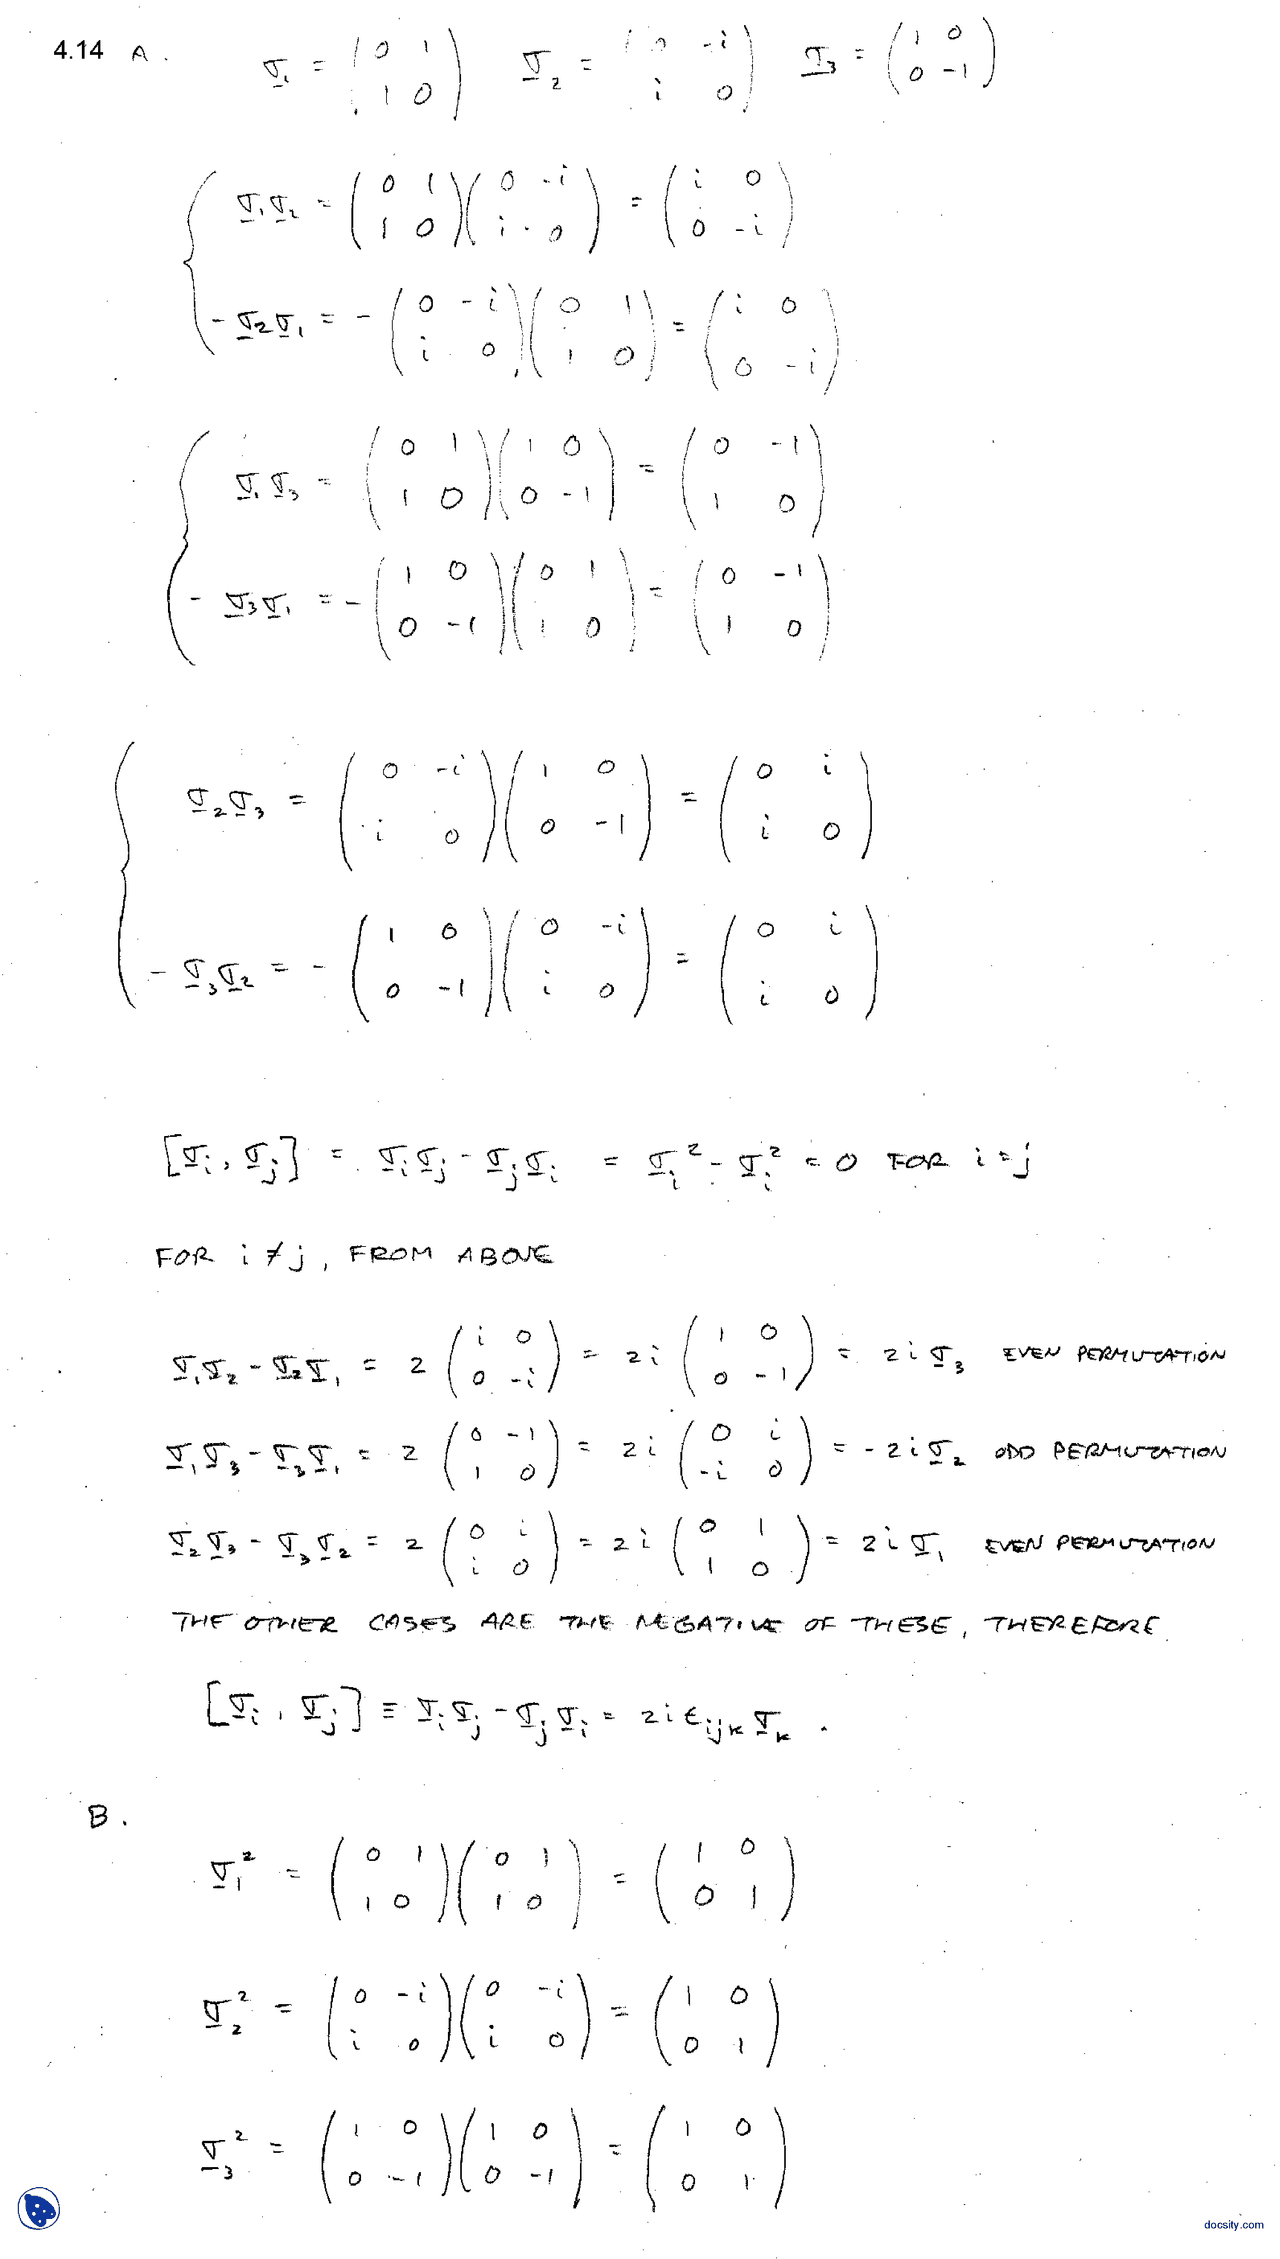 4.14 A. σ₁ = (0 1; 1 0) σ₂ = (0 -i; i 0) σ₃ = (1 0; 0 -1)
σ₁σ₂ = (0 1; 1 0)(0 -i; i 0) = (i 0; 0 -i)
-σ₂σ₁ = -(0 -i; i 0)(0 1; 1 0) = (i 0; 0 -i)
σ₁σ₃ = (0 1; 1 0)(1 0; 0 -1) = (0 -1; 1 0)
-σ₃σ₁ = -(1 0; 0 -1)(0 1; 1 0) = (0 -1; 1 0)
σ₂σ₃ = (0 -i; i 0)(1 0; 0 -1) = (0 i; i 0)
-σ₃σ₂ = -(1 0; 0 -1)(0 -i; i 0) = (0 i; i 0)
[σᵢ, σⱼ] = σᵢσⱼ - σⱼσᵢ = σᵢ² - σᵢ² = 0 FOR i = j
FOR i ≠ j, FROM ABOVE
σ₁σ₂ - σ₂σ₁ = 2(i 0; 0 -i) = 2i(1 0; 0 -1) = 2iσ₃ EVEN PERMUTATION
σ₁σ₃ - σ₃σ₁ = 2(0 -1; 1 0) = 2i(0 i; -i 0) = -2iσ₂ ODD PERMUTATION
σ₂σ₃ - σ₃σ₂ = 2(0 i; i 0) = 2i(0 1; 1 0) = 2iσ₁ EVEN PERMUTATION
THE OTHER CASES ARE THE NEGATIVE OF THESE, THEREFORE
[σᵢ, σⱼ] ≡ σᵢσⱼ - σⱼσᵢ = 2iϵᵢⱼₖσₖ.
B.
σ₁² = (0 1; 1 0)(0 1; 1 0) = (1 0; 0 1)
σ₂² = (0 -i; i 0)(0 -i; i 0) = (1 0; 0 1)
σ₃² = (1 0; 0 -1)(1 0; 0 -1) = (1 0; 0 1)
docsity.com